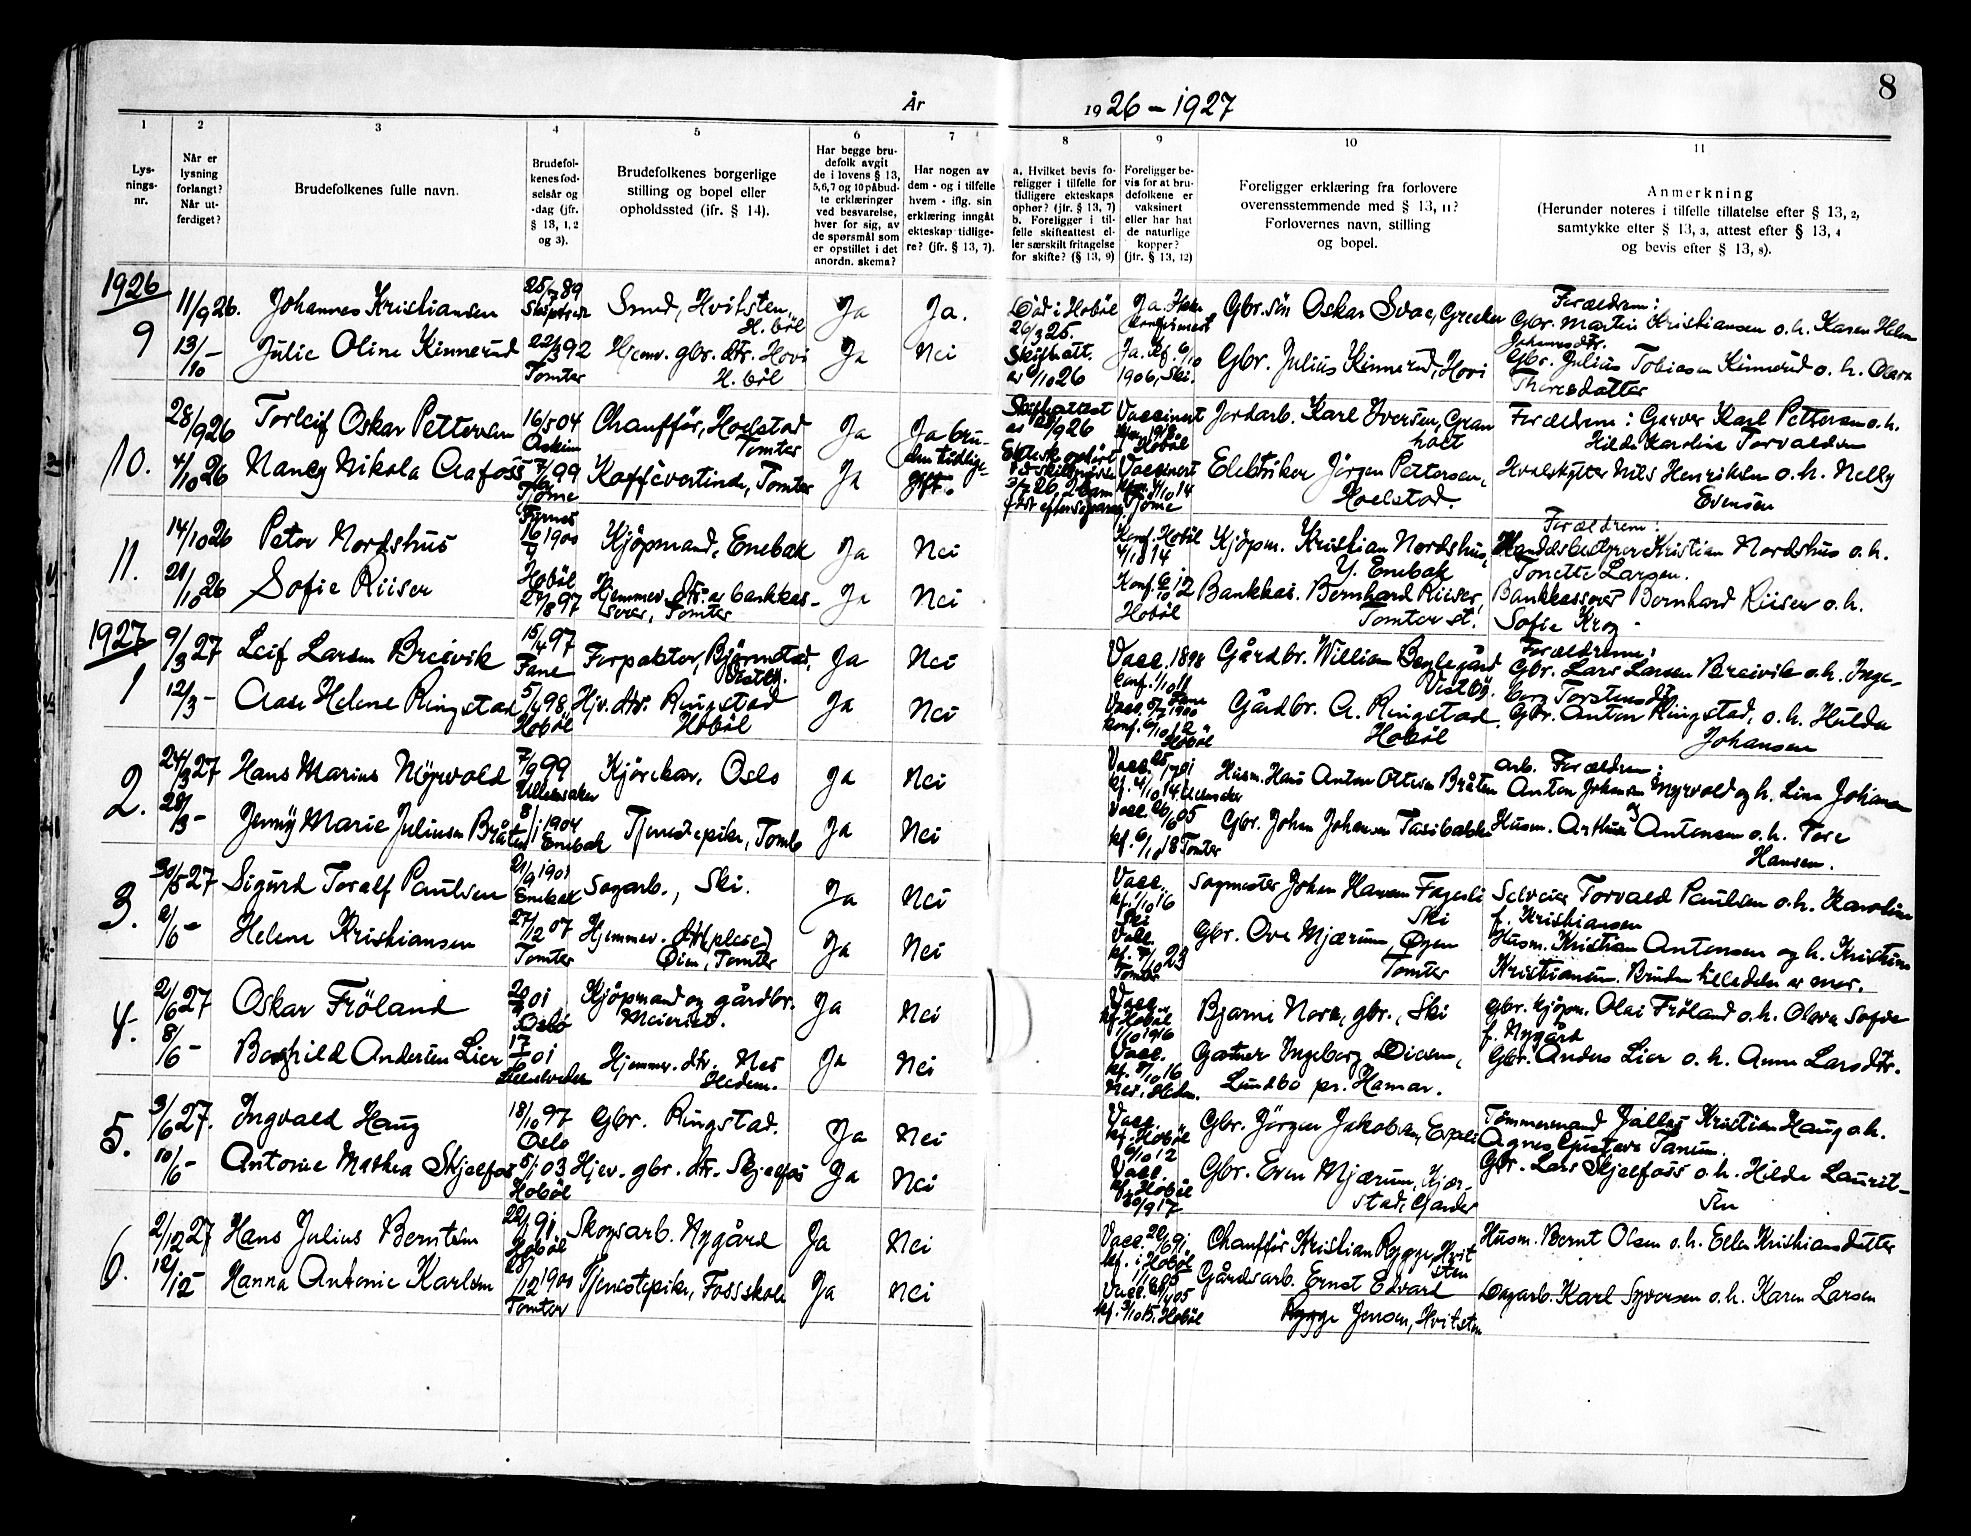 8
År 1926 – 1927
1
Lys-
nings-
nr.
2
Når er
lysning
forlangt?
Når ut-
ferdiget?
3
Brudefolkenes fulle navn.
4
Brudefol-
kenes fød-
selsår og
-dag (jfr.
§ 13, 1, 2
og 3).
5
Brudefolkenes borgerlige
stilling og bopel eller
opholdssted (jfr. § 14).
6
Har begge bru-
defolk avgit
de i lovens § 13,
5, 6, 7 og 10 påbud-
te erklæringer
ved besvarelse,
hver for sig, av
de spørsmål som
er opstillet i det
anordn. skema?
7
Har nogen av
dem - og i tilfelle
hvem - iflg. sin
erklæring inngåt
ekteskap tidlige-
re? (jfr. § 13, 7).
8
a. Hvilket bevis fo-
religger i tilfelle for
tidligere ekteskaps
ophør? (jfr. § 13, 7)
b. Foreligger i til-
felle skifteattest el-
ler særskilt fritagelse
for skifte? (§ 13, 9)
9
Foreligger be-
vis for at bru-
defolkene er
vaksinert
eller har hat
de naturlige
kopper?
(jfr. § 13, 12)
10
Foreligger erklæring fra forlovere
overensstemmende med § 13, 11?
Forlovernes navn, stilling
og bopel.
11
Anmerkning
(Herunder noteres i tilfelle tillatelse efter § 13, 2,
samtykke efter § 13, 3, attest efter § 13, 4
og bevis efter § 13, 8).
1926
9
11/9 26. Johannes Kristiansen 25/7 89 Smed, Hvitsten, H.böl Ja Ja. Död i Hoböl 26/3 25. Gbr. sön Oskar Svae, Forældrene:
Gbr. Martin Kristiansen o.h. Karen Helene
Johannesdtr.
13/10 – Julie Oline Kinnerud 22/3 92 Tomter Hjemv. gbr. dtr. Hovi H. böl Ja Nei Skifteatt. av 9/10 26 Ja. Kf. 6/10 1906, Ski. Gbr. Julius Kinnerud, Hovi Gbr. Julius Tobiasen Kinnerud o. h. Olava
Thoresdatter
10.
28/9 26 Torleif Oskar Pettersen 16/5 04 Askim Chauffør, Hoelstad Tomter Ja Ja bru-
den tidlige-
gift. Skifteattest Vaccinert Hoböl Jordarb. Karl Iversen, Gran
holt Forældrene: Garver Karl Pettersen o.h.
Hilda Karoline Torvaldsen
4/10 26 Nancy Nikola Aafoss 7/6 99 Tjöme Kaffévertinde, Tomter Ja Vaccinert Tjöme Elektriker Jörgen Pettersen,
Hoelstad. Hvalskytter Nils Henriksen o.h. Nelly
Evensen
11.
14/10 26 Peter Nordshus 16/9 1900 Kjöpmand, Enebak Ja Nei Konf. Hoböl 4/10 14 Kjöpm. Kristian Nordshus,
Y. Enebak Forældrene:
Handelsbestyrer Kristian Nordshus o.h.
Tonette Larsen.
21/10 26 Sofie Riiser Hoböl 27/8 97 Hjemmev. dtr. av bankkas-
serer, Tomter Ja Nei Konf. 6/10 12 Hoböl Bankkas. Bernhard Riiser,
Tomter st. Bankkasserer Bernhard Riiser o.h.
Sofie Krog.
1927
1
9/3 27 Leif Larsen Breivik 15/4 97 Fane Forpakter, Björnstad, Vestby. Ja Nei Vacc. 1898 konf. 1/10 11 Fane Gårdbr. William Bøylegård
Vestby. Forældrene:
Gbr. Lars Larsen Breivik o.h. Inge-
borg Torstensdtr
12/3 – Aase Helene Ringstad 5/6 98, Hoböl Hjv. dtr. Ringstad
Hoböl Ja Nei Vacc. 5/7 1900 konf. 6/10 12 Hoböl Gårdbr. A. Ringstad
Hoböl Gbr. Anton Ringstad, o.h. Hulda
Johansen
2.
24/3 27 Hans Marius Nyrvold 7/9 99 Ullensaker Kjörekar, Oslo Ja Nei Husm. Hans Anton Ottesen Bråten arb. Forældrene:
Anton Johansen Myrvold og h. Lina Johansen
28/3 – Jenny Marie Juliusen Bråten 8/1 1904 Enebak Tjenestepike, Tomter Ja Nei Vacc. 26/6 05 kf. 6/10 18 Tomter Gbr. Johan Johansen Husm. Arthur Antonsen o.h. Tore
Hansen.
3.
30/5 27 Sigurd Toralf Paulsen 21/9 1901 Enebak Sagarb., Ski. Ja Nei Vacc. kf. 1/10 16 Ski Sagmester Johan Hansen Fagerli
Ski Selveier Torvald Paulsen o.h. Karoline
f. Kristiansen
2/6 – Helene Kristiansen 27/12 07 Tomter Hjemmev. dtr (pleie)
Öien, Tomter Ja Nei Vacc. kf. 7/10 23 Tomter Gbr. Ove Mjærum, Øyen
Tomter Husm. Kristian Antonsen og h. Kristine
Kristiansen.
4.
2/6 27 Oskar Fröland Oslo Kjöpmand og gårdbr.
Meieriet. Ja Nei Vacc. kf. Hoböl 1/10 1916 Bjarne Nore, gbr., Ski gbr. kjöpm. Olai Fröland o.h. Olava Sofie
f. Nygård
8/6 – Borghild Andersen Lier Hjemmev. dtr. Nes
Hedem. Ja Nei Vacc. kf. 8/10 16 Nes, Hedm. Gartner Ingeborg
Lundbo pr. Hamar. Gbr. Anders Lier o. h. Anna Larsdtr.
5.
3/6 27. Ingvald Haug 18/10 97 Oslo Gbr. Ringstad. Ja Nei Vacc. kf. Hoböl 6/10 12 Gbr. Jörgen Jakobsen, Espeli Tømmermand Kristian Haug o.h.
Agnes Gustava Tanum.
10/6 – Antonie Mathea Skjelfos 5/1 03 Hoböl Hjev. gbr. dtr. Skjelfos Ja Nei Vacc. kf. Hoböl 30/9 17 Gbr. Even Mjærum, Kjær-
stad, Garder Gbr. Lars Skjelfoss o.h. Hilda Laurit-
sen
6.
2/12 27 Hans Julius Berntsen 22/1 91 Hoböl Skogsarb. Nygård Ja Nei kf. i Hoböl Chauffør Kristian Rygge, Hvit
sten Husm. Bernt Olsen o.h. Ellen Kristiansdatter
12/12 – Hanna Antonie Karlsen 28/12 1900 Tomter Tjenestepike, Fossskole Ja Nei kf. 3/10 15. Hoböl Gårdsarb. Ernst Edvard
Jensen, Hvitsten Dagarb. Karl Syversen o.h. Karen Larsen